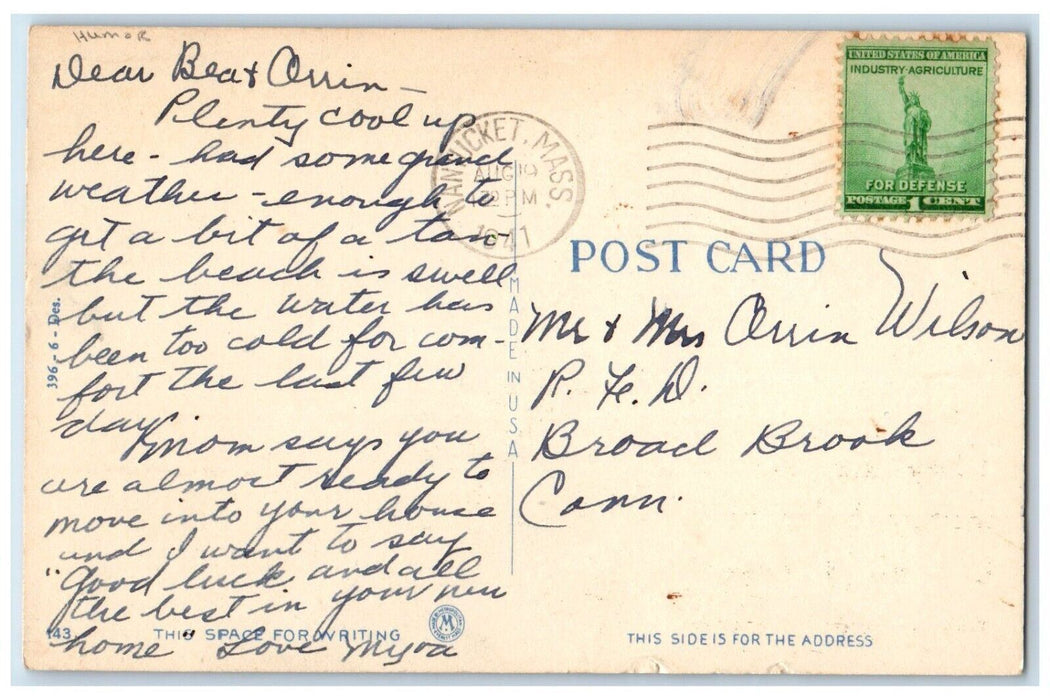 Humor
Dear Bea & Orrin -
Plenty cool up
here - had some grand
weather - enough to
get a bit of a tan
the beach is swell
but the water has
been too cold for com-
fort the last few
days.
Mom says you
are almost ready to
move into your house
and I want to say
"Good luck and all
the best in your new
home" Love Myra
143
THIS SPACE FOR WRITING
396 - 6 - Des.
MADE IN USA
NANTUCKET, MASS.
AUG 19
12 PM
1941
UNITED STATES OF AMERICA
INDUSTRY-AGRICULTURE
FOR DEFENSE
POSTAGE 1 CENT
POST CARD
Mr & Mrs Orrin Wilson
R. F. D.
Broad Brook
Conn.
THIS SIDE IS FOR THE ADDRESS